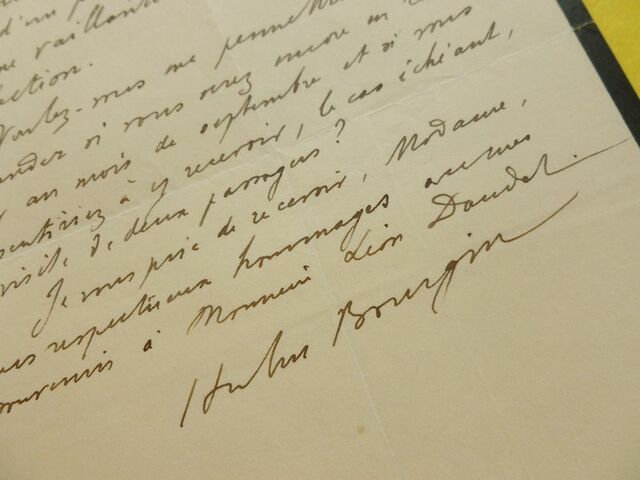 d'un p
ne vaillant
ection.
Voulez-vous me permettre
ander si vous serez encore en
au mois de septembre et si vous
sentiriez à y recevoir, le cas échéant,
visite de deux passages ?
Je vous prie de recevoir, Madame,
mes respectueux hommages avec mes
souvenirs à Monsieur Léon Daudet.
Hubert Bourgin